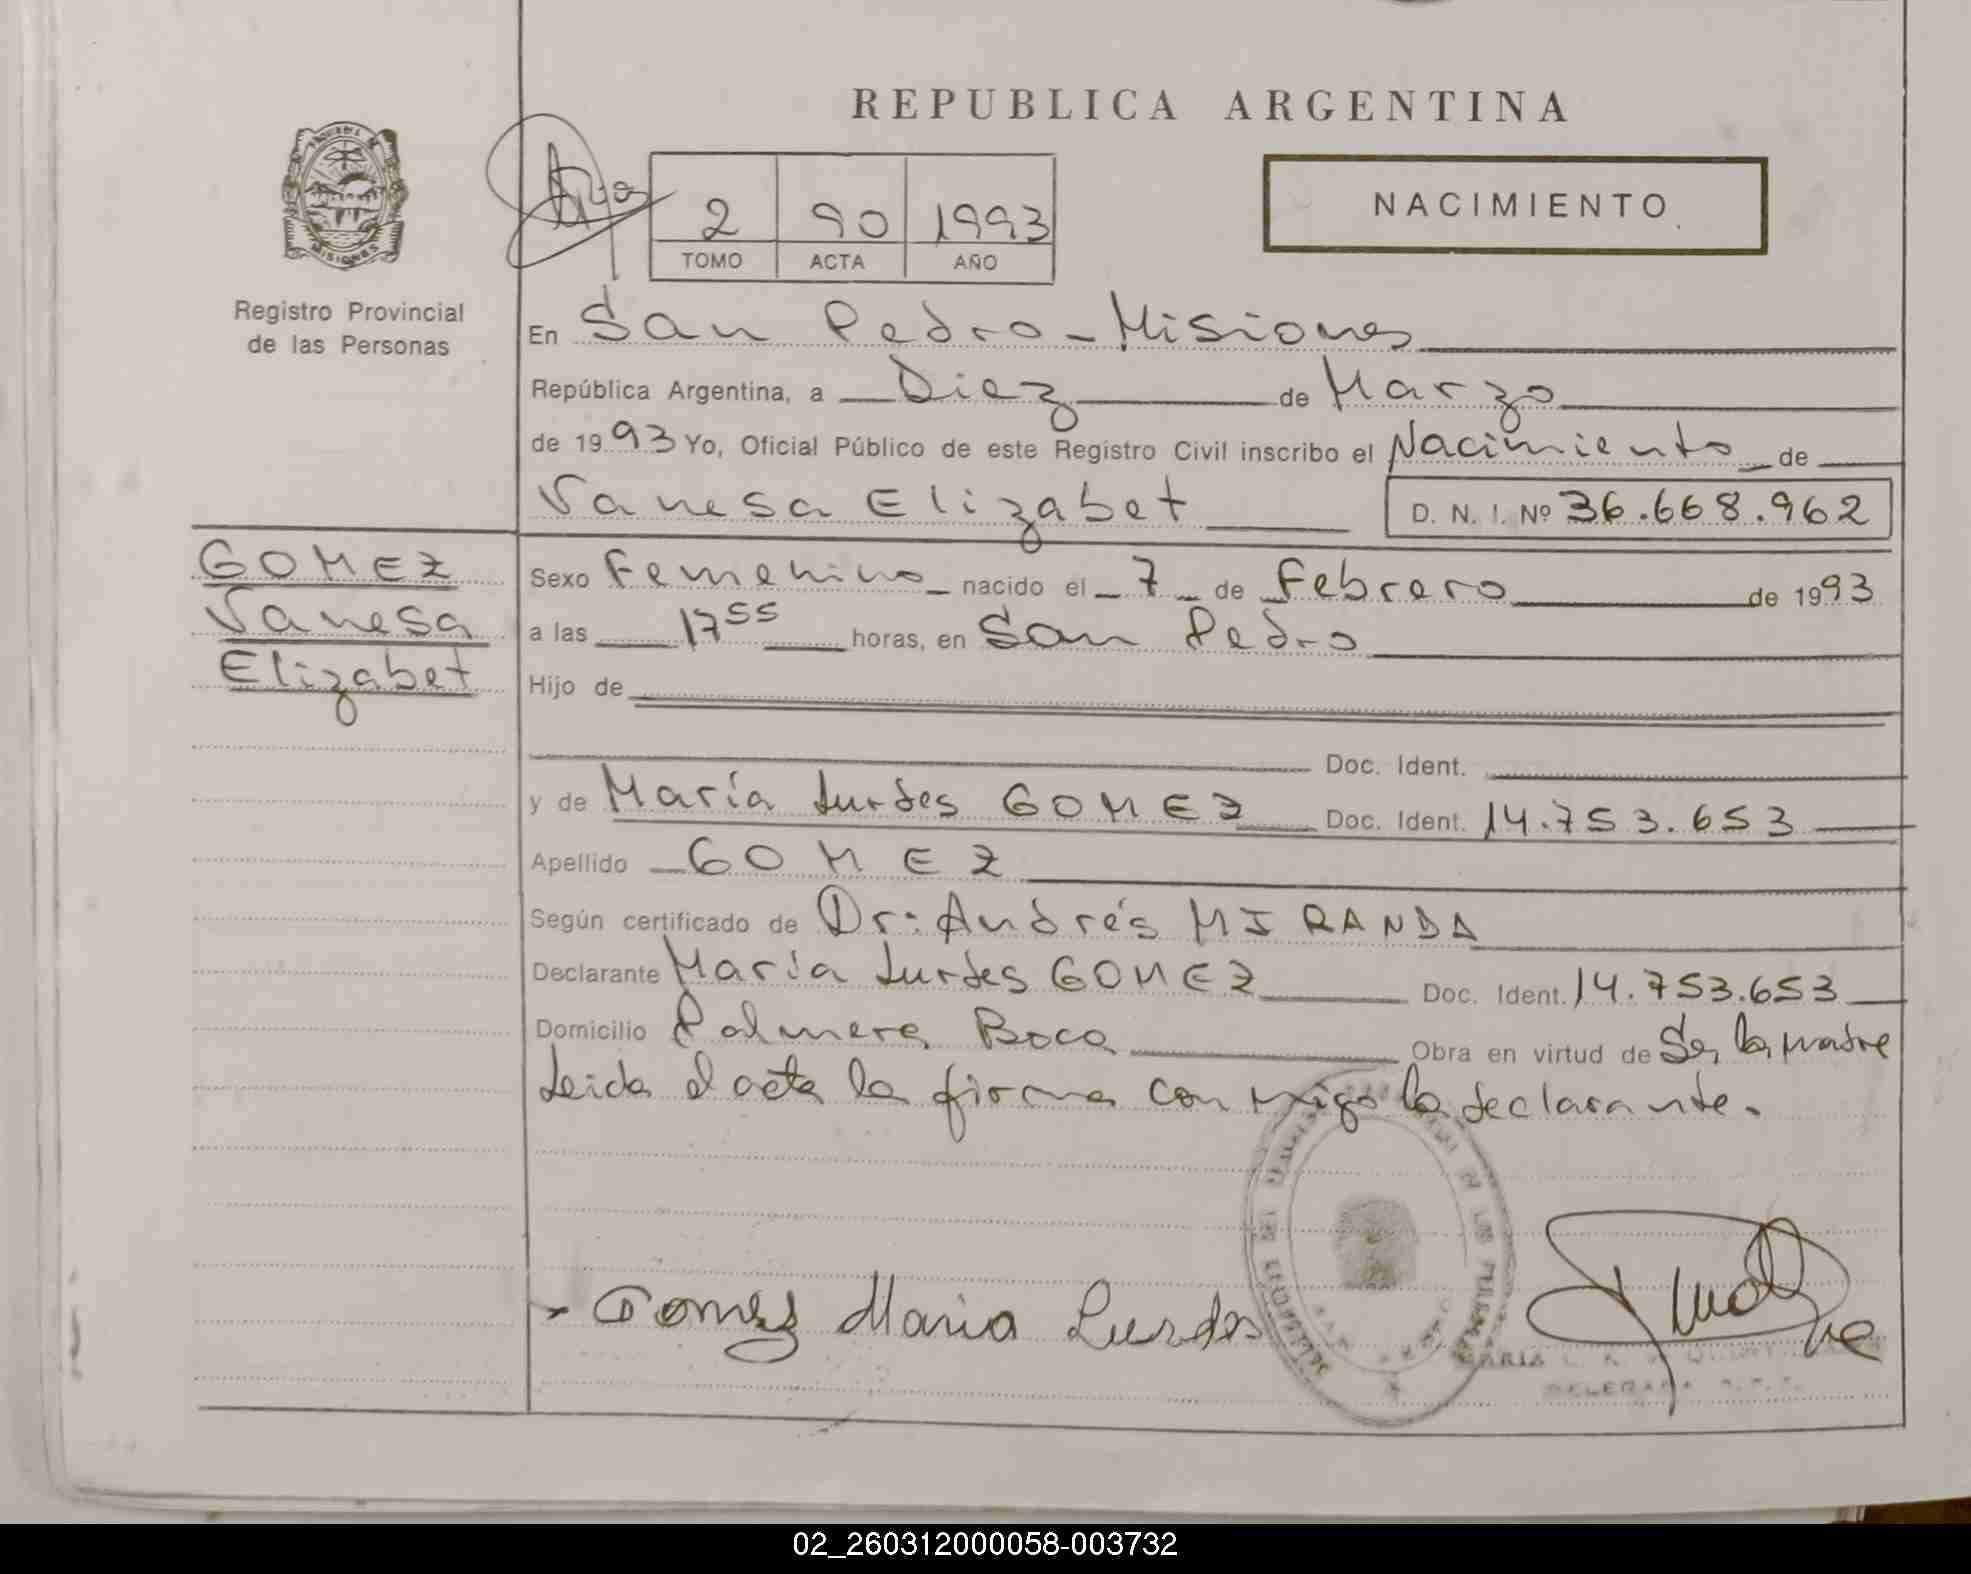 REPUBLICA ARGENTINA
NACIMIENTO
2 90 1993
TOMO ACTA AÑO
MISIONES
Registro Provincial
de las Personas
En San Pedro - Misiones
República Argentina, a Diez de Marzo
de 1993 Yo, Oficial Público de este Registro Civil inscribo el Nacimiento de
Vanesa Elizabet D. N. I. Nº 36.668.962
GOMEZ
Vanesa
Elizabet
Sexo Femenino nacido el 7 de Febrero de 1993
a las 17 55 horas, en San Pedro
Hijo de
Doc. Ident.
y de María Lurdes GOMEZ Doc. Ident. 14.753.653
Apellido GOMEZ
Según certificado de Dr: Andrés MIRANDA
Declarante María Lurdes GOMEZ Doc. Ident. 14.753.653
Domicilio Palmera Boca Obra en virtud de Ser la madre
Leida el acta la firma con migo la declarante.
Gomez Maria Lurdes
02_260312000058-003732